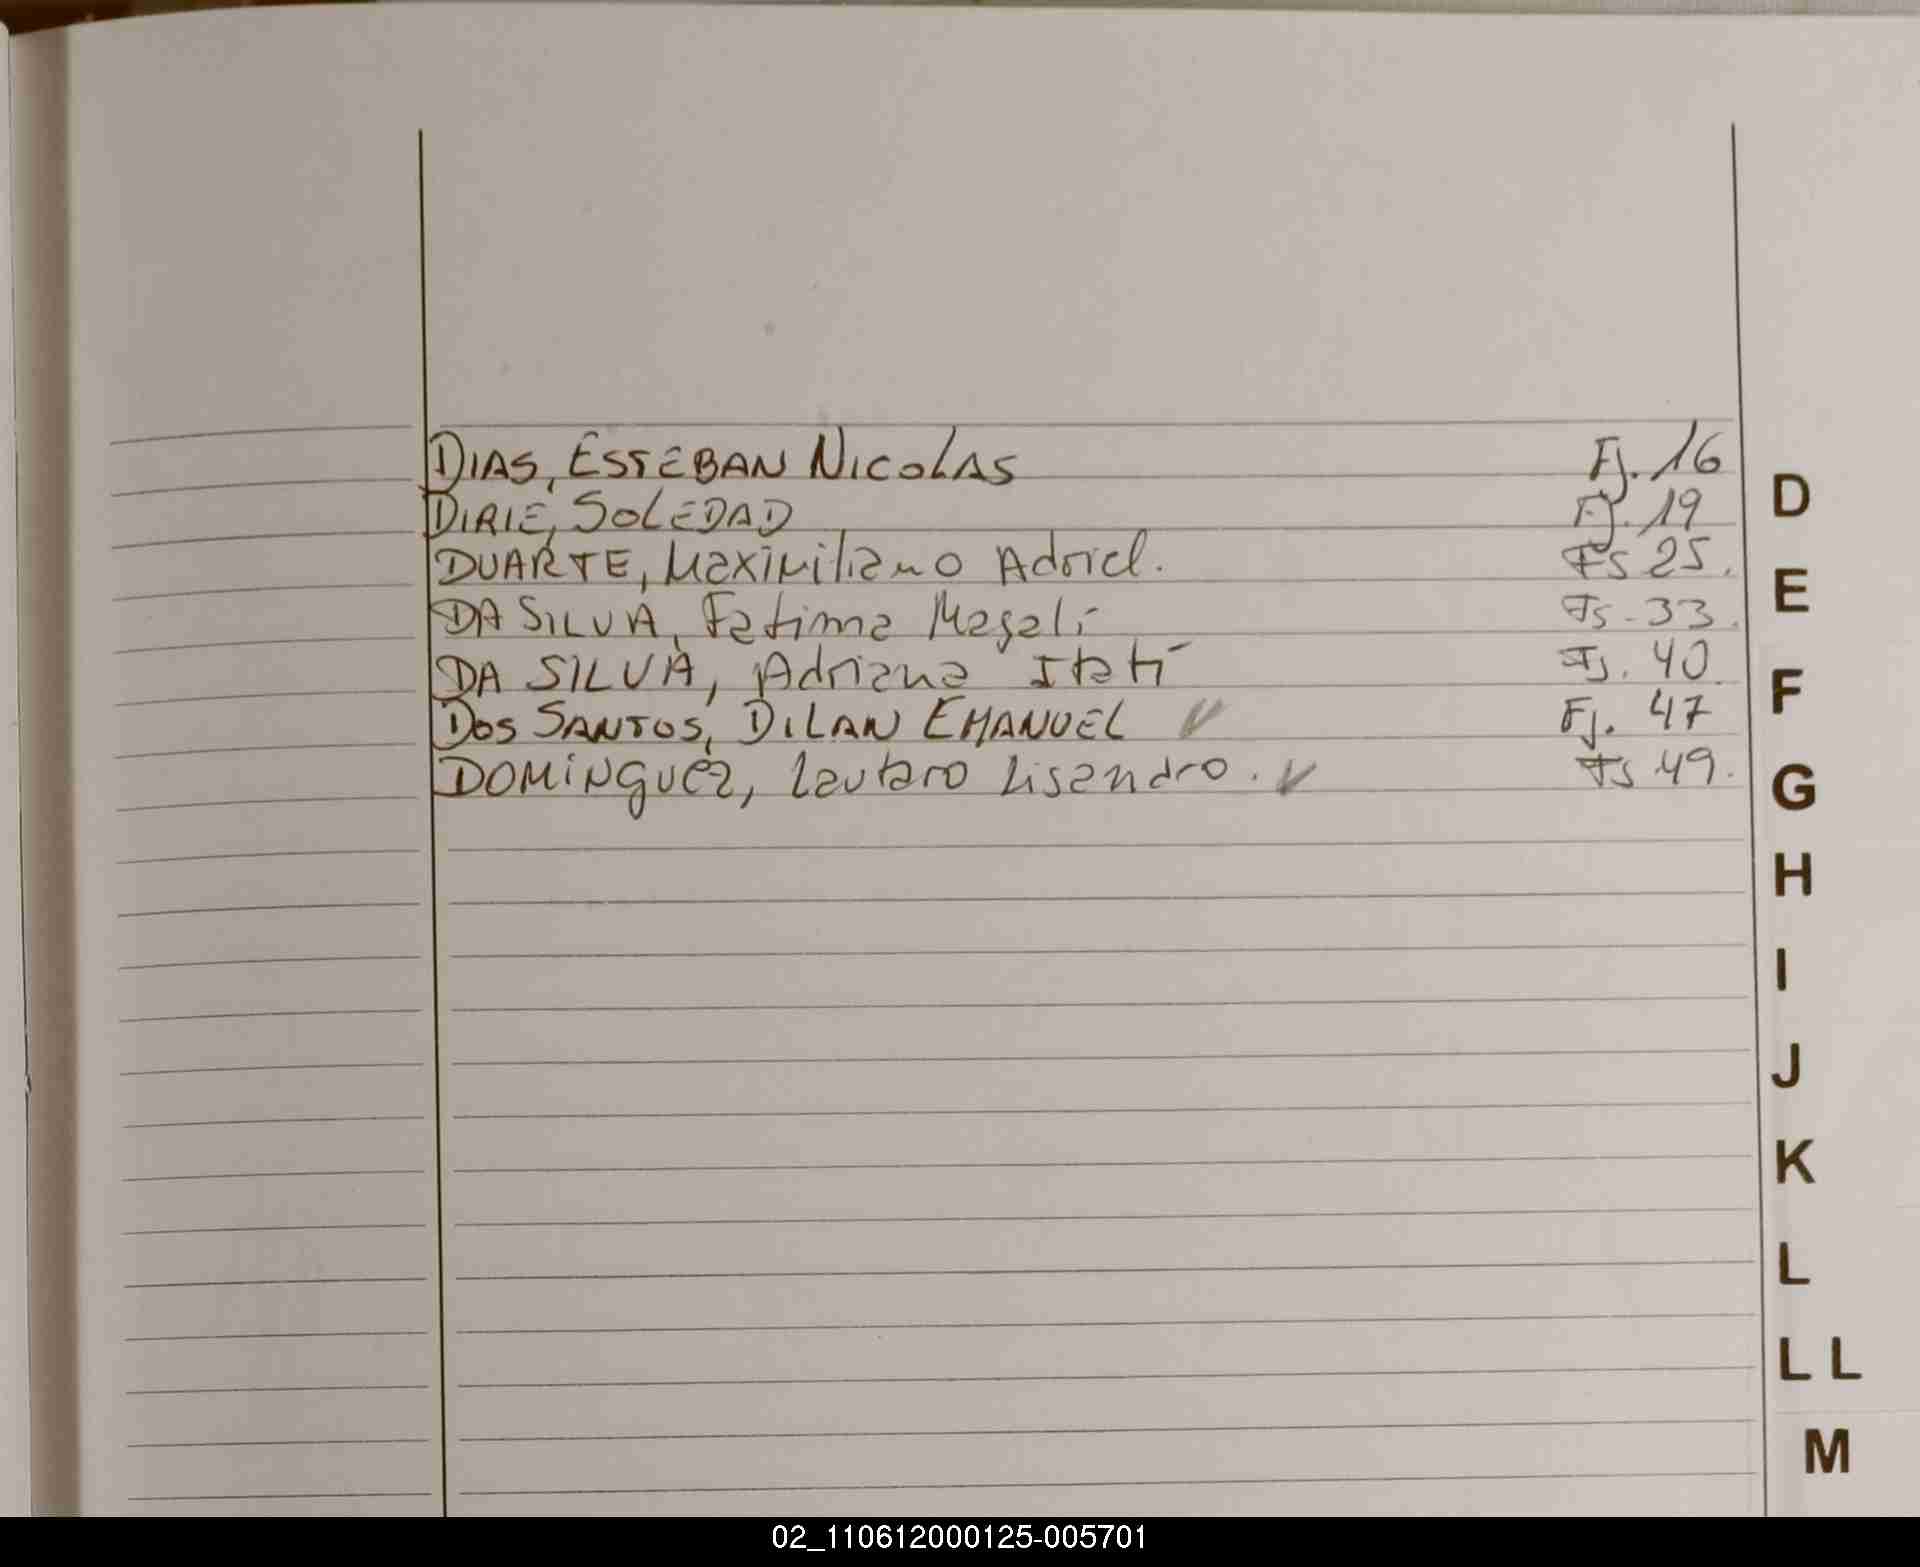 DIAS, ESTEBAN NICOLAS Fj. 16
DIRIE, SOLEDAD Fj. 19
DUARTE, Maximiliano Adriel. Fs 25.
DA SILVA, Fatima Magali Fs. 33.
DA SILVA, Adriana Itatí Fs. 40.
DOS SANTOS, DILAN EMANUEL ✓ Fj. 47
DOMINGUEZ, Lautaro Lisandro. ✓ Fs 49.
D
E
F
G
H
I
J
K
L
LL
M
02_110612000125-005701